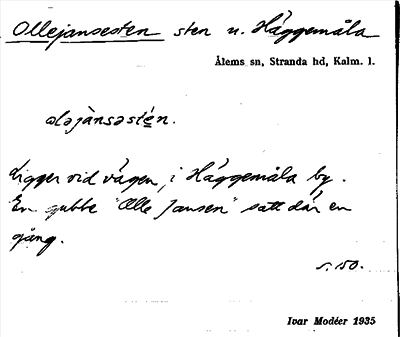 Ollejansesten sten u. Häggemåla
Ålems sn, Stranda hd, Kalm. l.
ɷləjànsəstén.
Ligger vid vägen, i Häggemåla by.
En gubbe "Olle Jansen" satt där en
gång.
s. 150.
Ivar Modéer 1935